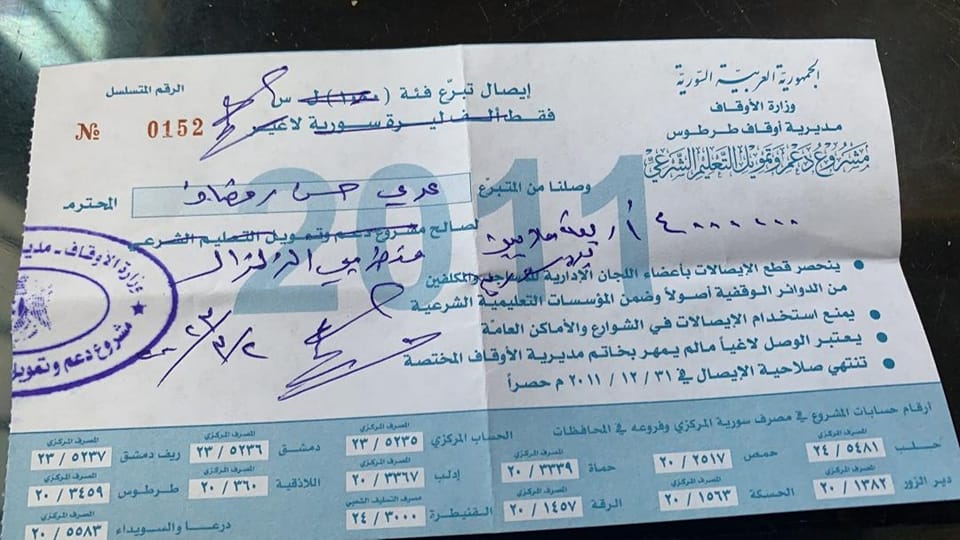 الجمهورية العربية السورية
وزارة الأوقاف
مديرية أوقاف طرطوس
مشروع دعم وتمويل التعليم الشرعي
إيصال تبرّع فئة ( ) ل س
فقط ألف ليرة سورية لا غير
الرقم المتسلسل
№ 0152
2011
وصلنا من المتبرّع حسن رمضان المحترم
٤٠٠٠٠٠٠ أربعة ملايين
لصالح مشروع دعم وتمويل التعليم الشرعي
الزلزال
ينحصر قطع الإيصالات بأعضاء اللجان الإدارية والمكلفين
من الدوائر الوقفية أصولاً وضمن المؤسسات التعليمية الشرعية
يمنع استخدام الإيصالات في الشوارع والأماكن العامة
يعتبر الوصل لاغياً مالم يمهر بخاتم مديرية الأوقاف المختصة
تنتهي صلاحية الإيصال في ٣١ / ١٢ / ٢٠١١ م حصراً
٢/٣/٢٠٢٣
وزارة الأوقاف - مديـ
مشروع دعم وتمويل
أرقام حسابات المشروع في مصرف سورية المركزي وفروعه في المحافظات
حلب المصرف المركزي ٢٤ / ٥٤٨١
حمص المصرف المركزي ٢٠ / ٢٥١٧
حماة المصرف المركزي ٢٠ / ٣٣٣٩
دير الزور المصرف المركزي ٢٠ / ١٣٨٢
الحسكة المصرف المركزي ٢٠ / ١٥٦٣
الرقة المصرف المركزي ٢٠ / ١٤٥٧
الحساب المركزي المصرف المركزي ٢٣ / ٥٢٣٥
دمشق المصرف المركزي ٢٣ / ٥٢٣٦
ريف دمشق المصرف المركزي ٢٣ / ٥٢٣٧
إدلب المصرف المركزي ٢٠ / ٣٣٦٧
اللاذقية المصرف المركزي ٢٠ / ٣٦٠
طرطوس المصرف المركزي ٢٠ / ٣٤٥٩
القنيطرة مصرف التسليف الشعبي ٢٤ / ٣٠٠٠
درعا والسويداء المصرف المركزي ٢٠ / ٥٥٨٣